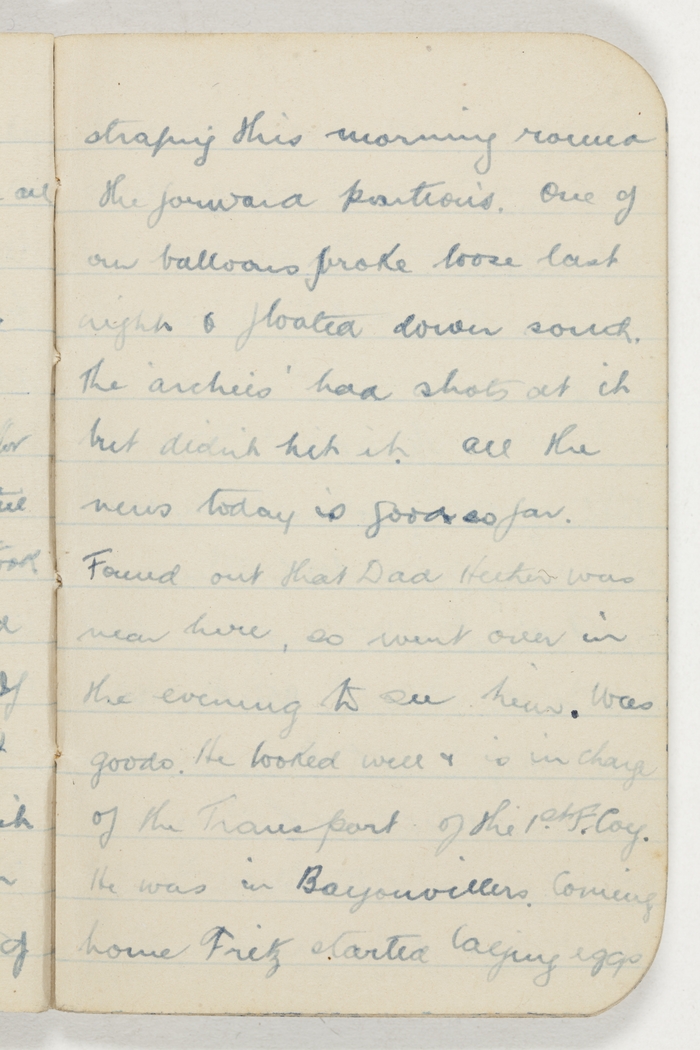 strafing this morning round
the forward positions. One of
our balloons broke loose last
night & floated down south.
The 'archies' had shots at it
but didn't hit it. All the
news today is good so far.
Found out that Dad was
near here, so went over in
the evening to see him. Was
goods. He looked well & is in charge
of the Transport of the 1st F. Coy.
He was in Bayonvillers. Coming
home Fritz started laying eggs